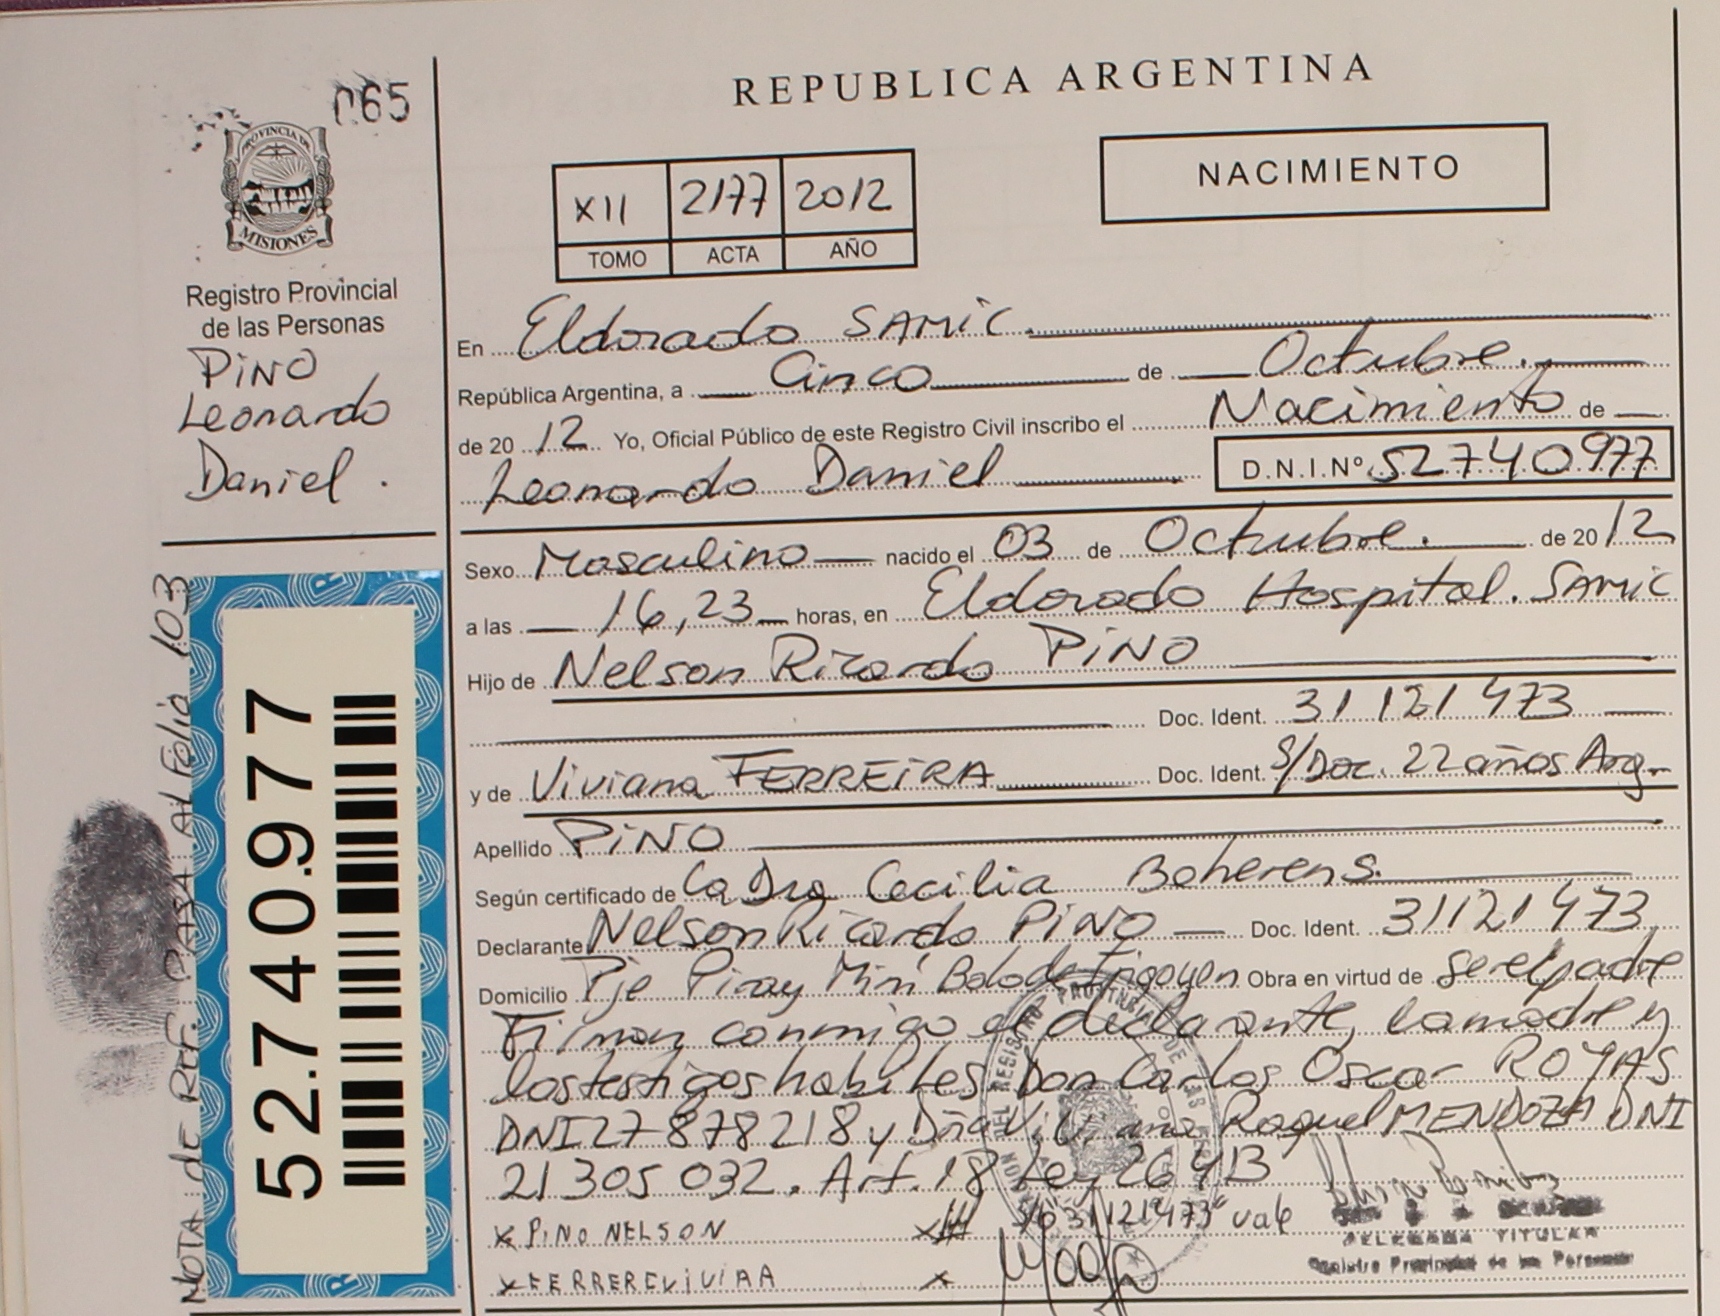 065
REPUBLICA ARGENTINA
NACIMIENTO
XII 2177 2012
TOMO ACTA AÑO
PROVINCIA DE
MISIONES
Registro Provincial
de las Personas
PiNO
Leonardo
Daniel.
En Eldorado SAMIC.
República Argentina, a Cinco de Octubre.
de 2012 Yo, Oficial Público de este Registro Civil inscribo el Nacimiento de
Leonardo Daniel D.N.I.Nº 52740977
Sexo Masculino nacido el 03 de Octubre. de 2012
a las 16,23 horas, en Eldorado Hospital. SAMIC
Hijo de Nelson Ricardo PiNO
Doc. Ident. 31121473
y de Viviana FERREiRA Doc. Ident. S/Doc. 22 años Arg.
Apellido PiNO
Según certificado de La Dra Cecilia Boherens.
Declarante Nelson Ricardo PiNO Doc. Ident. 31121473
Domicilio Pje Piray Miní Irigoyen Obra en virtud de ser el padre
Firman conmigo el declarante, la madre y
los testigos habiles Don Carlos Oscar ROYAS
DNI 27878218 y Dña Viviana Raquel MENDOZA DNI
21305032. Art. 18 Ley 26413
x PiNO NELSON x 31121473 vale
x x
TITULAR
Registro Provincial de las Personas
52.740.977
NOTA de REF. PASA Al Folio 103